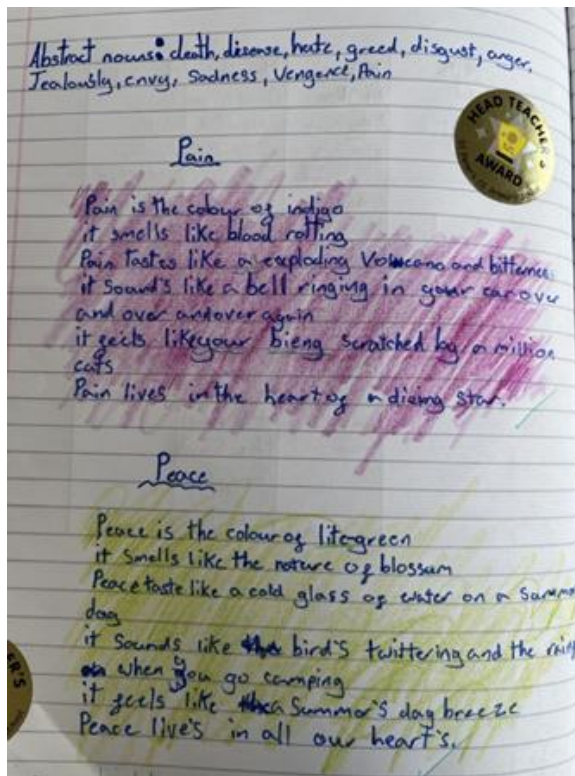 Abstract nouns: death, disease, hate, greed, disgust, anger,
Jealously, envy, Sadness, Vengence, Pain
HEAD TEACHER'S
AWARD
Pain
Pain is the colour of indigo
it smells like blood rotting
Pain tastes like a exploding Volcano and bitternes
it Sound's like a bell ringing in your ear over
and over and over again
it feels like your bieng scratched by a million
cats
Pain lives in the heart of a dieing star.
Peace
Peace is the colour of lite-green
it smells like the nature of blossum
Peace taste like a cold glass of water on a Summ
day
it sounds like bird's twittering and the rain
when you go camping
it feels like a Summer's day breeze
Peace live's in all our heart's.
ER'S